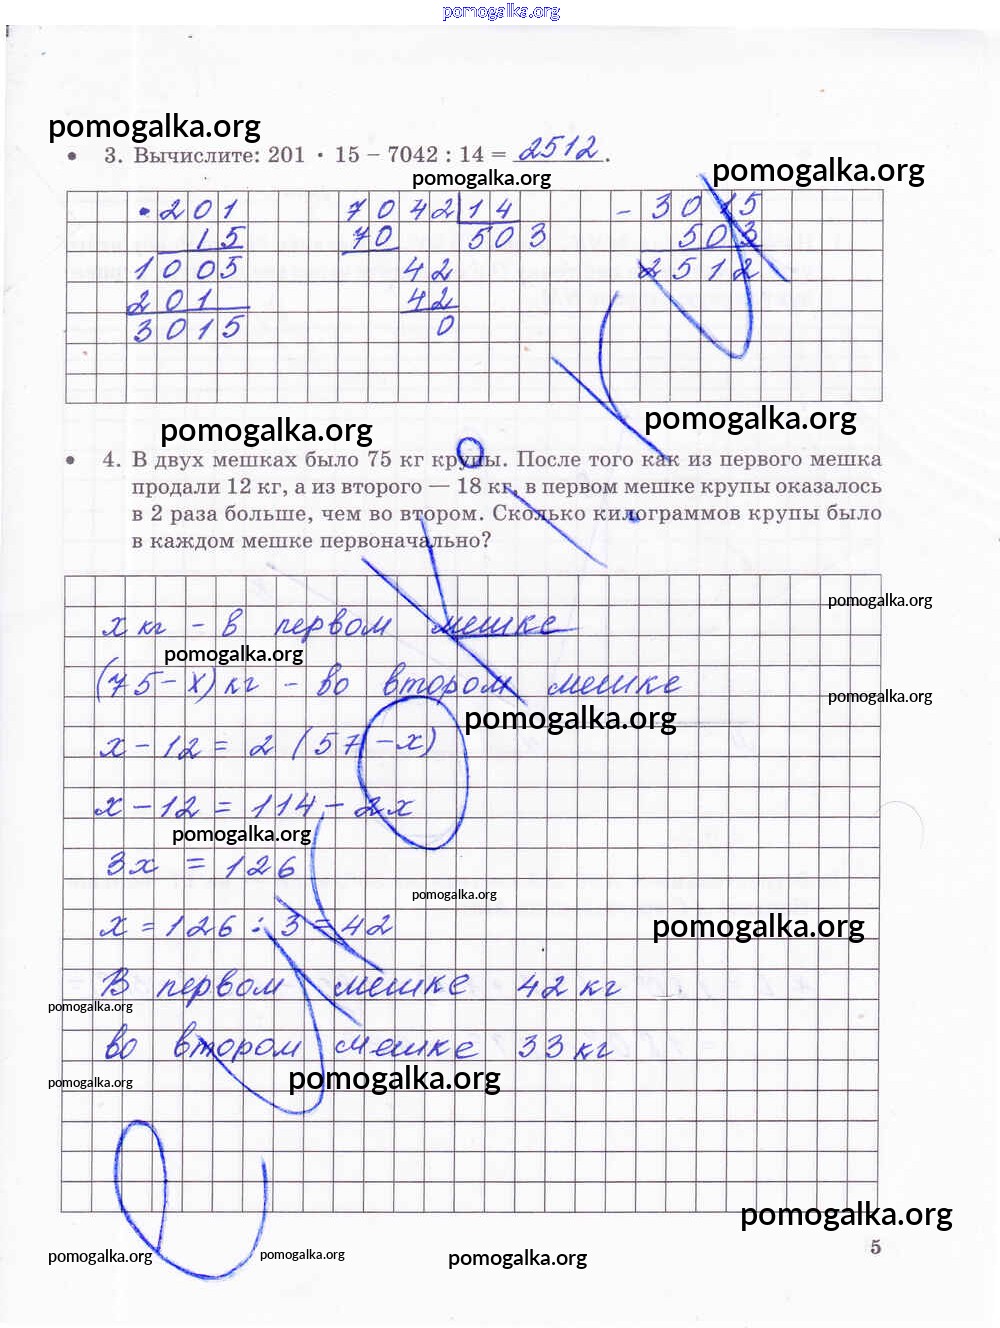 pomogalka.org
pomogalka.org
• 3. Вычислите: 201 · 15 – 7042 : 14 = 2512.
pomogalka.org
pomogalka.org
· 201
15
1005
201
3015
7042 | 14
70 503
42
42
0
– 3015
503
2512
pomogalka.org
pomogalka.org
• 4. В двух мешках было 75 кг крупы. После того как из первого мешка
продали 12 кг, а из второго — 18 кг, в первом мешке крупы оказалось
в 2 раза больше, чем во втором. Сколько килограммов крупы было
в каждом мешке первоначально?
pomogalka.org
x кг – в первом мешке
pomogalka.org
(75 – x) кг – во втором мешке
pomogalka.org
pomogalka.org
x – 12 = 2 (57 – x)
x – 12 = 114 – 2x
pomogalka.org
3x = 126
pomogalka.org
x = 126 : 3 = 42
pomogalka.org
В первом мешке 42 кг
pomogalka.org
во втором мешке 33 кг
pomogalka.org
pomogalka.org
pomogalka.org
5
pomogalka.org
pomogalka.org
pomogalka.org